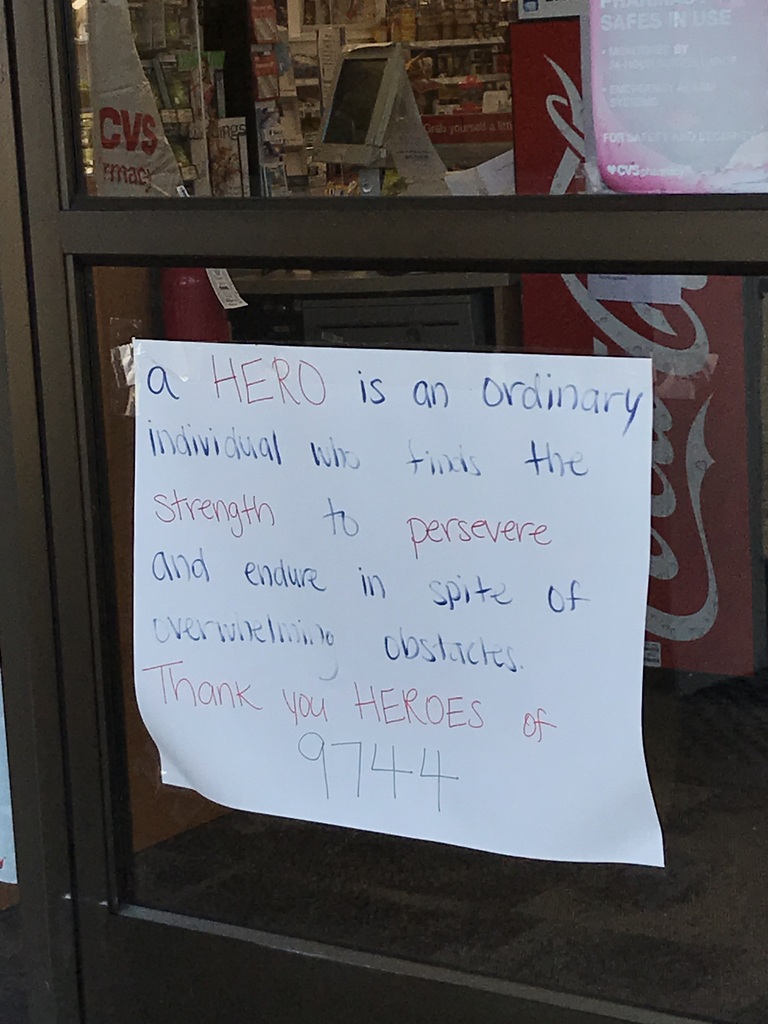 PHARMACY
SAFES IN USE
CVS
Grab yourself a litt
FOR SAFETY AND SECURITY
CVS pharmacy
a HERO is an ordinary
individual who finds the
strength to persevere
and endure in spite of
overwhelming obstacles.
Thank you HEROES of
9744